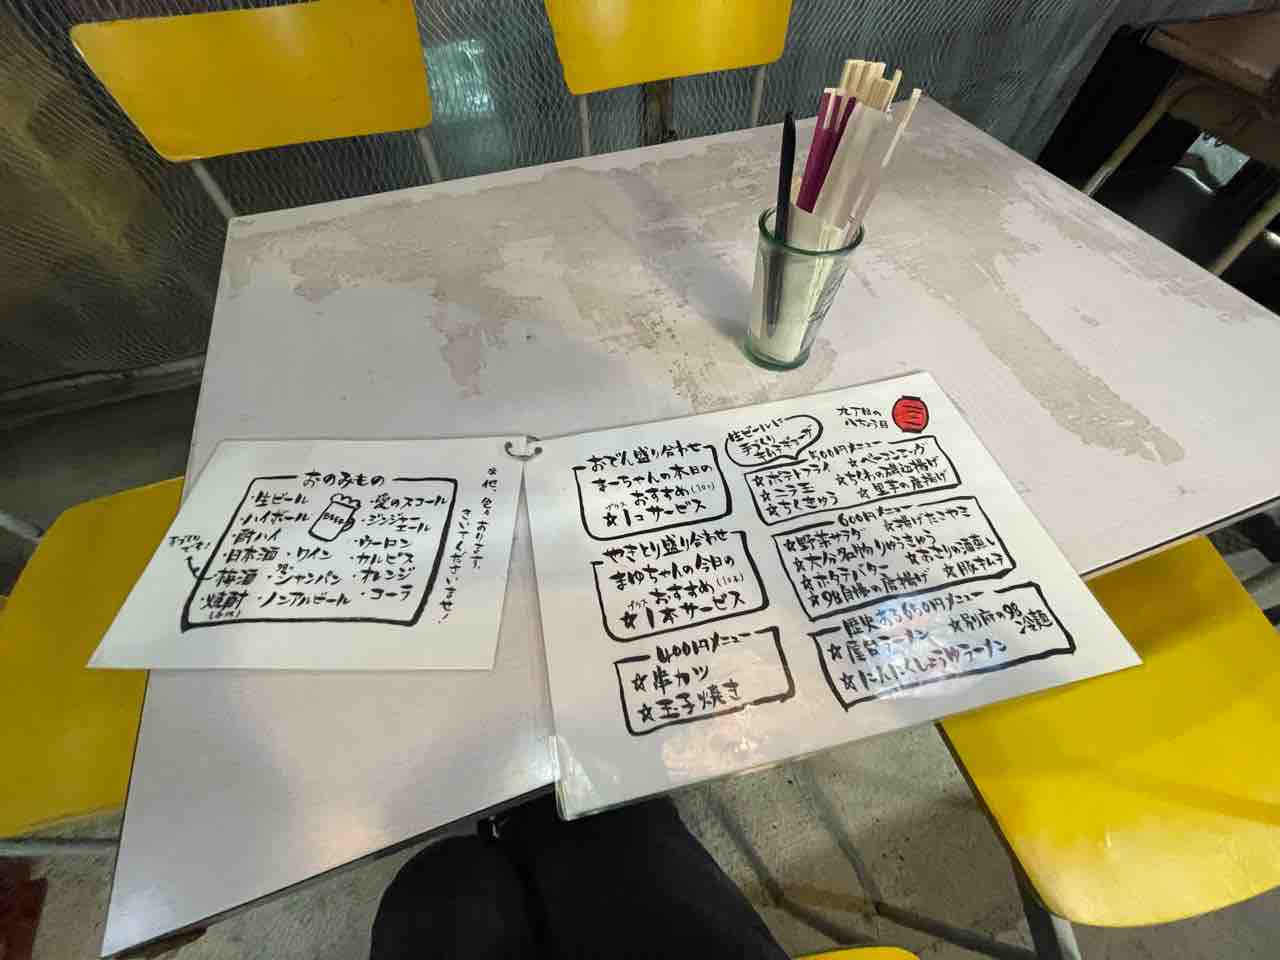 おのみもの
・生ビール
・ハイボール
・酎ハイ
・日本酒 ・ワイン
・梅酒 ・シャンパン
・焼酎 ・ノンアルビール
BEER
・愛のスコール
・ジンジャーエール
・ウーロン
・カルピス
・オレンジ
・コーラ
おでん盛り合わせ
まーちゃんの本日の
おすすめ
☆1コサービス
やきとり盛り合わせ
まゆちゃんの今日の
おすすめ
プラス
☆1本サービス
400円メニュー
☆串カツ
☆玉子焼き
生ビールに
手づくり
九丁目の
八ちょう目
500円メニュー
☆ポテトフライ
☆ベーコンエッグ
☆ニラ玉
☆ちくわの磯辺揚げ
☆ちくきゅう
☆里芋の唐揚げ
600円メニュー
☆野菜サラダ
☆揚げたこやき
☆大分名物りゅうきゅう
☆あさりの酒蒸し
☆ホタテバター
☆豚キムチ
歴史ある650円メニュー
☆屋台ラーメン
☆別府の98冷麺
☆にんにくしょうゆラーメン